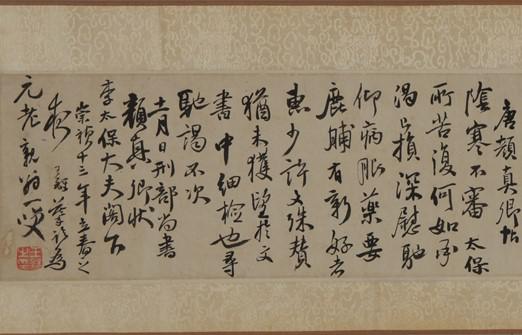 唐顏真卿帖
陰寒不審太保
所苦復何如承
渴已損深慰馳
仰病服藥要
鹿脯有新好者
惠少許文殊贊
猶未獲望於文
書中細檢也尋
馳謁不次
十一月日刑部尚書
顏真卿狀
李太保大夫閣下
崇禎十三年立春之
王鐸
為
元老親翁一笑